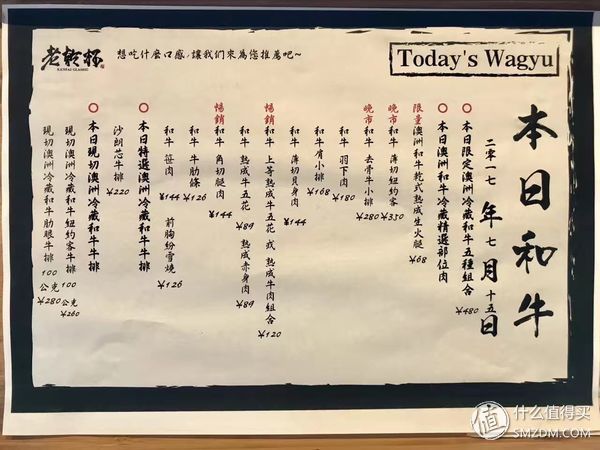 老乾杯
KANPAI CLASSIC
想吃什麼口感,讓我們來為您推薦吧~
Today's Wagyu
本日和牛
二零一七年七月十五日
本日限定澳洲冷藏和牛五種組合 ¥480
本日澳洲和牛冷藏精選部位肉
限量澳洲和牛乾式熟成生火腿 ¥68
晚市和牛 薄切紐約客 ¥330
晚市和牛 去骨牛小排 ¥280
和牛 羽下肉 ¥180
和牛 骨小排 ¥168
和牛 薄切貝身肉 ¥144
暢銷和牛 上等熟成牛五花 或 熟成牛肉組合 ¥120
和牛 熟成牛五花 ¥89 熟成赤身肉 ¥89
暢銷和牛 角切腿肉 ¥144
和牛 牛肋條 ¥126
和牛 笹肉 ¥144 前胸紛雪燒 ¥126
本日特選澳洲冷藏和牛牛排
沙朗芯牛排 ¥220
本日現切澳洲冷藏和牛牛排
現切澳洲冷藏和牛紐約客牛排 100公克 ¥260
現切澳洲冷藏和牛肋眼牛排 100公克 ¥280
值 什么值得买
SMZDM.COM